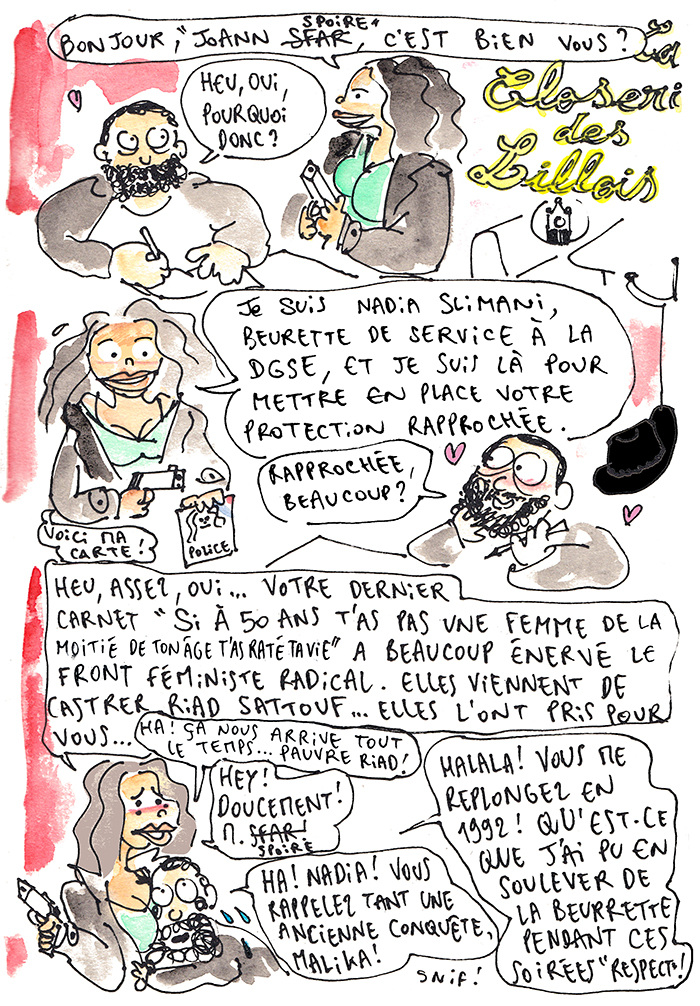 SPOIRE"
BONJOUR, "JOANN SFAR, C'EST BIEN VOUS?
La
Closeri
des
Lillois
HEU, OUI,
POURQUOI
DONC?
JE SUIS NADIA SLIMANI,
BEURETTE DE SERVICE À LA
DGSE, ET JE SUIS LÀ POUR
METTRE EN PLACE VOTRE
PROTECTION RAPPROCHÉE.
RAPPROCHÉE,
BEAUCOUP?
VOICI MA
CARTE!
POLICE
HEU, ASSEZ, OUI... VOTRE DERNIER
CARNET "SI À 50 ANS T'AS PAS UNE FEMME DE LA
MOITIÉ DE TON ÂGE T'AS RATÉ TA VIE" A BEAUCOUP ÉNERVÉ LE
FRONT FÉMINISTE RADICAL. ELLES VIENNENT DE
CASTRER RIAD SATTOUF... ELLES L'ONT PRIS POUR
VOUS...
HA! ÇA NOUS ARRIVE TOUT
LE TEMPS... PAUVRE RIAD!
HEY!
DOUCEMENT!
M. SFAR!
SPOIRE
HA! NADIA! VOUS
RAPPELEZ TANT UNE
ANCIENNE CONQUÊTE,
MALIKA!
SNIF!
HALALA! VOUS ME
REPLONGEZ EN
1992! QU'EST-CE
QUE J'AI PU EN
SOULEVER DE
LA BEURRETTE
PENDANT CES
SOIRÉES "RESPECT"!